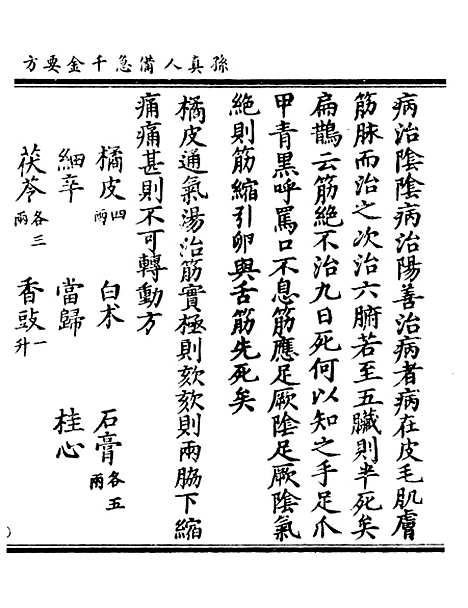 孫真人備急千金要方
病治陰陰病治陽善治病者病在皮毛肌膚
筋脉而治之次治六腑若至五臟則半死矣
扁鵲云筋絶不治九日死何以知之手足爪
甲青黑呼罵口不息筋應足厥陰足厥陰氣
絶則筋縮引卵與舌筋先死矣
橘皮通氣湯治筋實極則欬欬則兩脇下縮
痛痛甚則不可轉動方
橘皮四兩 白术 石膏各五兩
細辛 當歸 桂心
茯苓各三兩 香豉一升